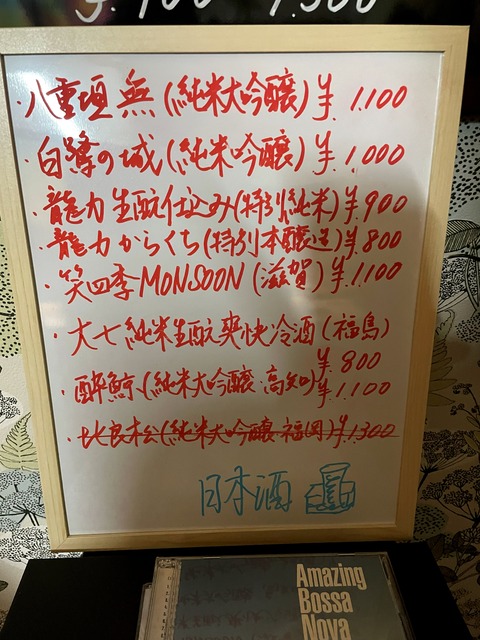 ・八重垣 無(純米大吟醸)¥.1.100
・白鷺の城(純米吟醸)¥.1,000
・龍力 生酛仕込み(特別純米)¥.900
・龍力 からくち(特別本醸造)¥.800
・笑四季MONSOON(滋賀)¥.1100
・大七純米生酛爽快冷酒(福島)
¥800
・酔鯨(純米大吟醸・高知)¥1,100
純米大吟醸・福岡)¥.1300
日本酒
Amazing
Bossa
Nova